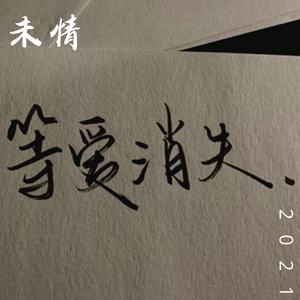 未情
等爱消失.
2021